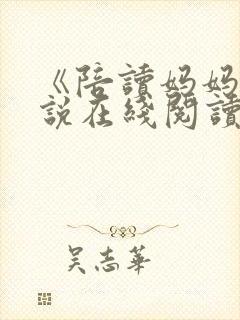 《陪讀妈妈
說在綫閱讀
吴志華